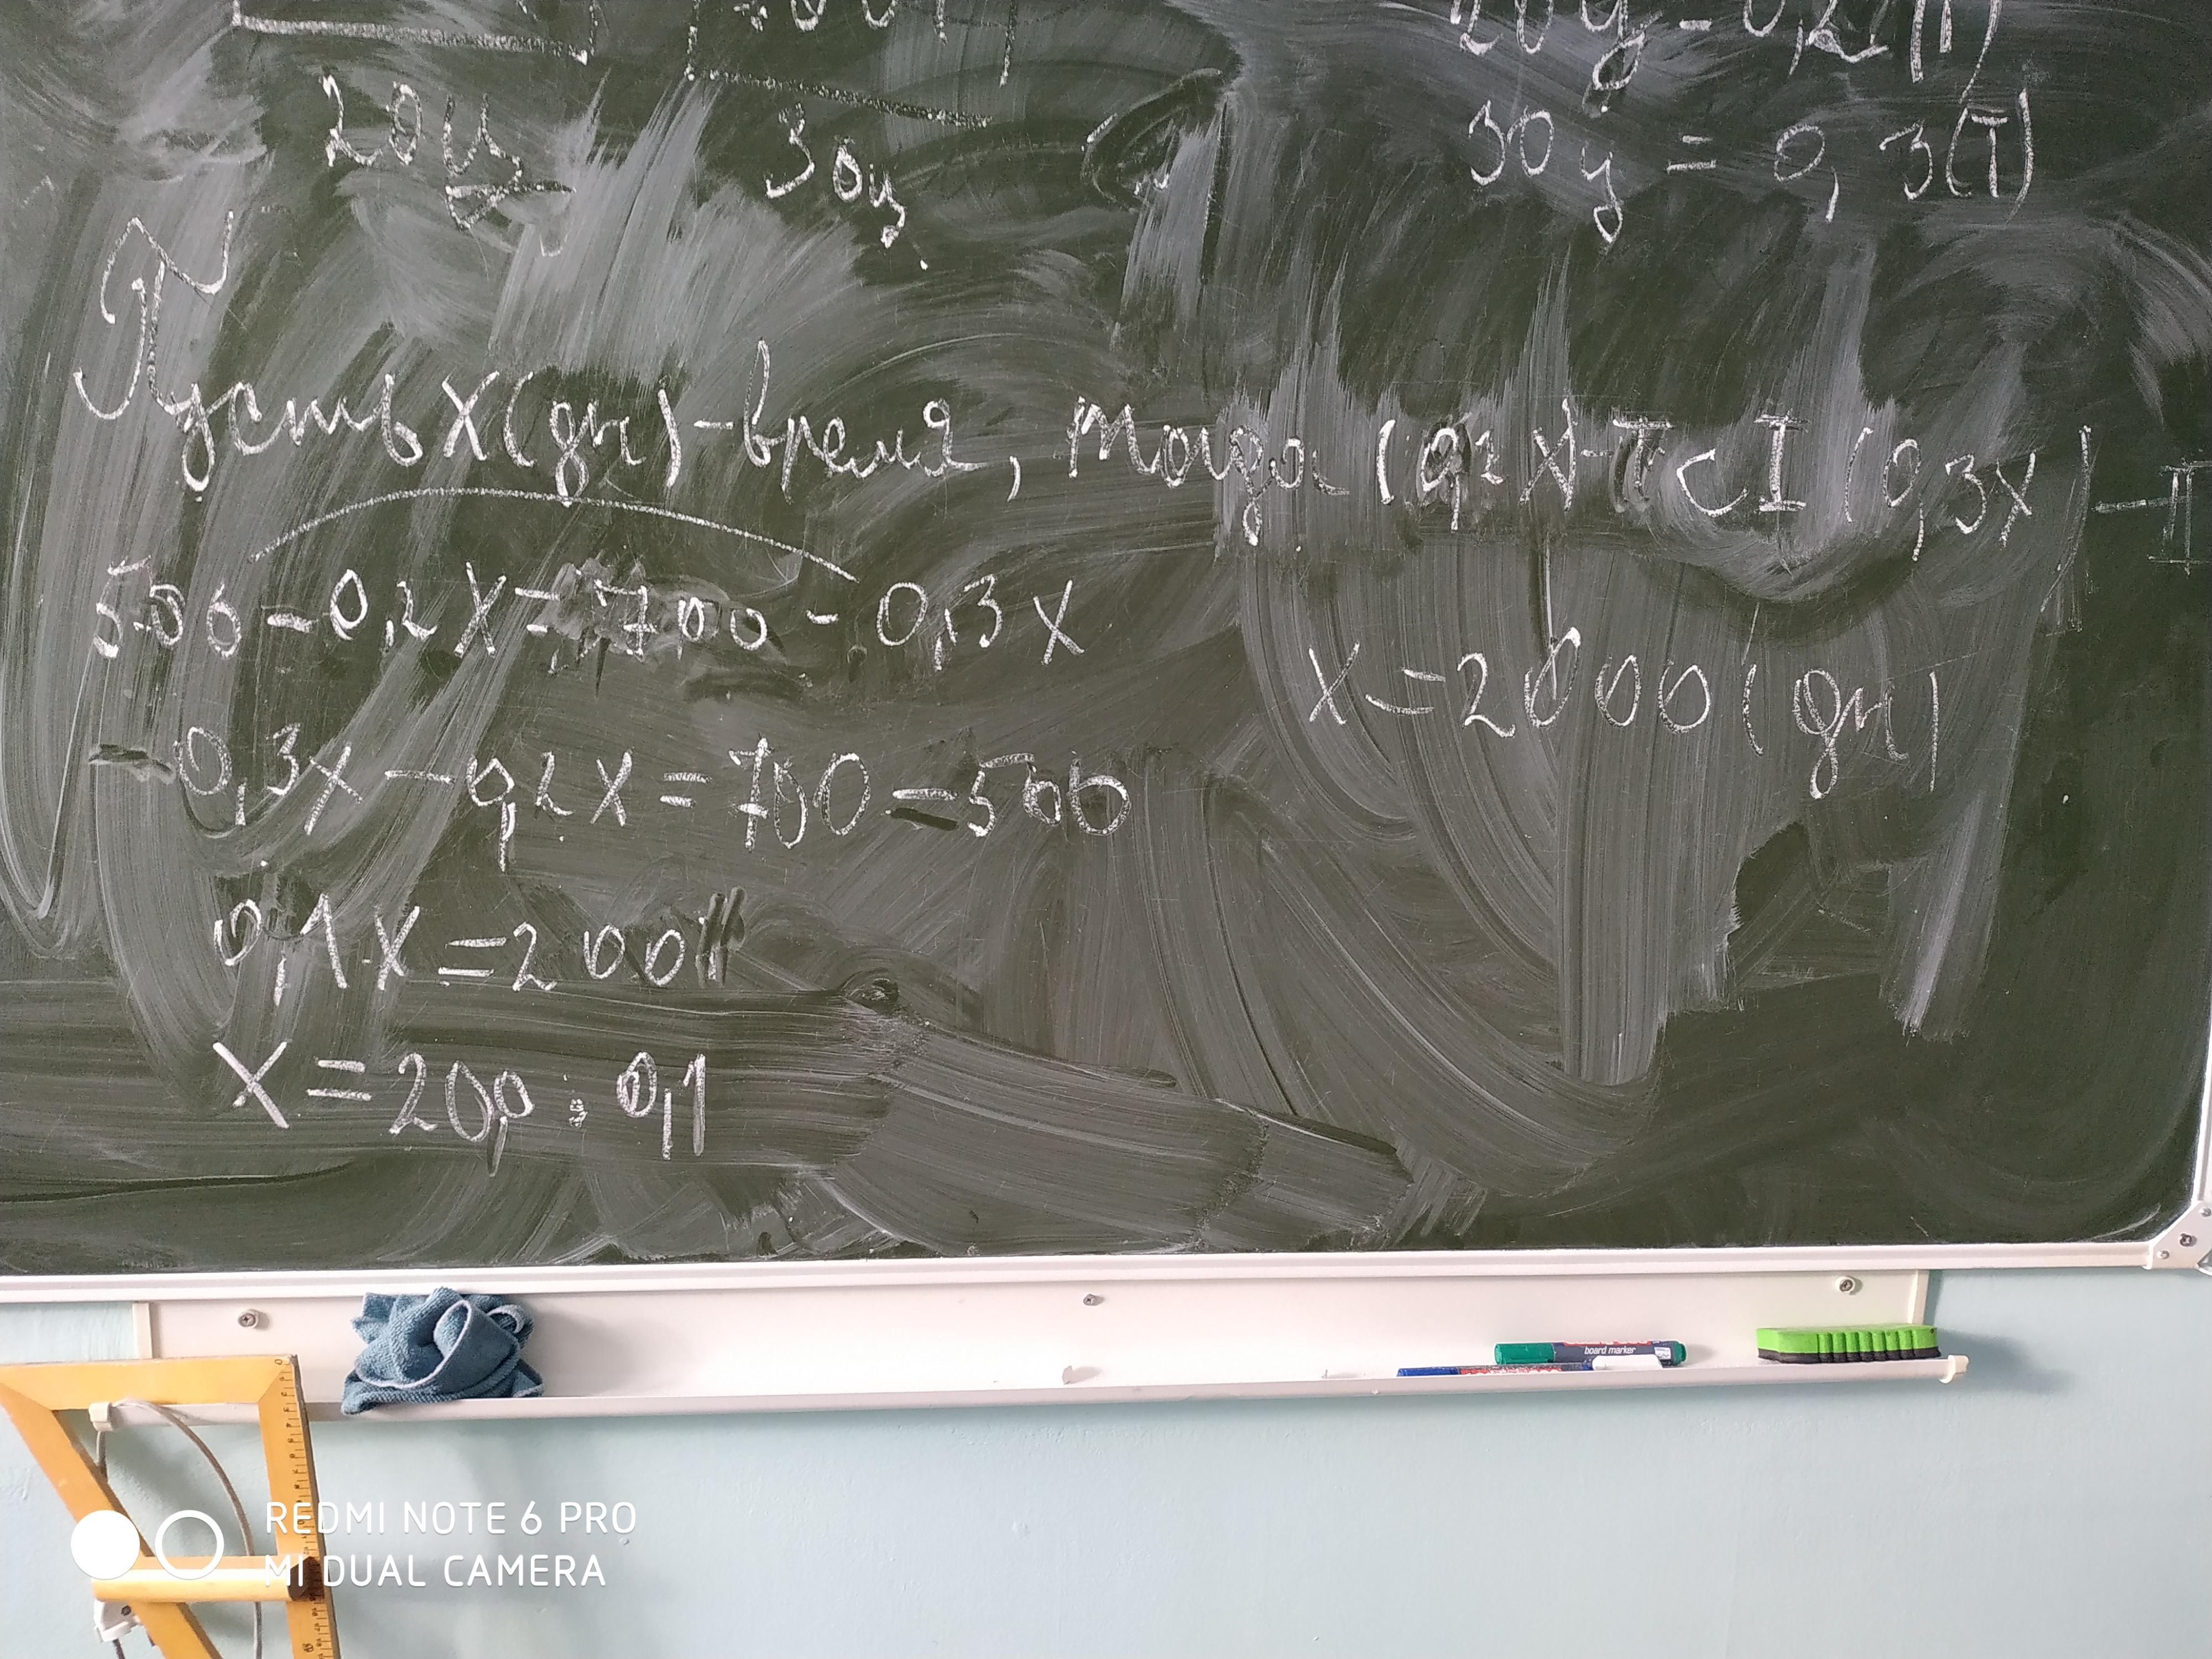 20ц = 0,2(т)
20ц
30ц
30ц = 0,3(т)
Пусть x(дн) - время, тогда (0,2x) - т с I (0,3x) - II
500 - 0,2x = 700 - 0,3x
x = 2000(дн)
0,3x - 0,2x = 700 - 500
0,1x = 200
x = 200 : 0,1
board marker
REDMI NOTE 6 PRO
MI DUAL CAMERA